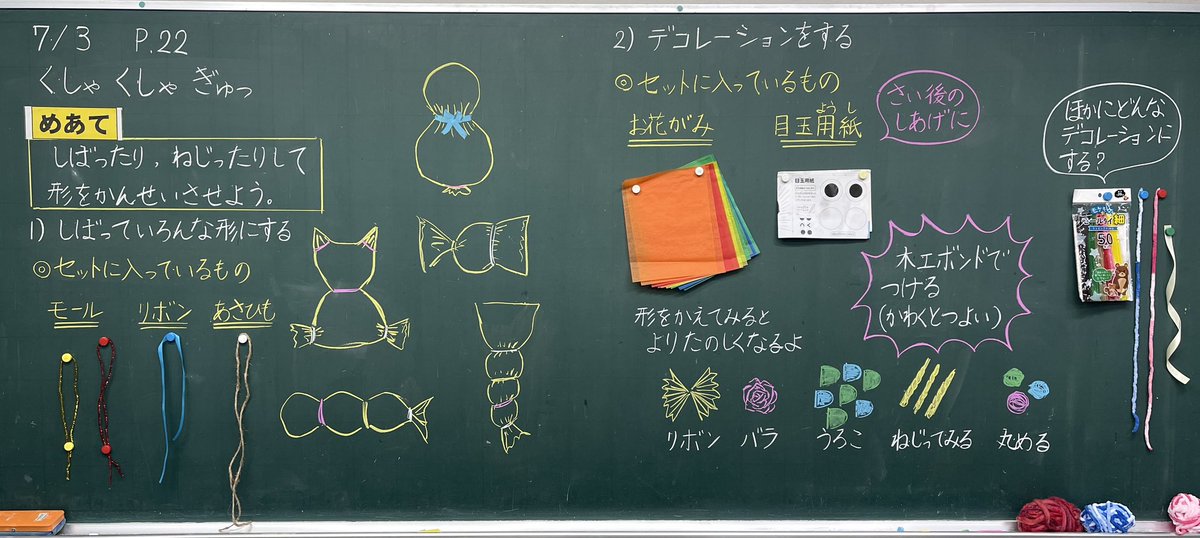 7/3 P.22
くしゃくしゃ ぎゅっ
めあて
しばったり,ねじったりして
形をかんせいさせよう。
1) しばっていろんな形にする
◎セットに入っているもの
モール リボン あさひも
2) デコレーションをする
◎セットに入っているもの
お花がみ
目玉用紙
ようし
さい後の
しあげに
目玉用紙
木工ボンドで
つける
(かわくとつよい)
形をかえてみると
よりたのしくなるよ
リボン バラ うろこ ねじってみる 丸める
ほかにどんな
デコレーションに
する?
細
50